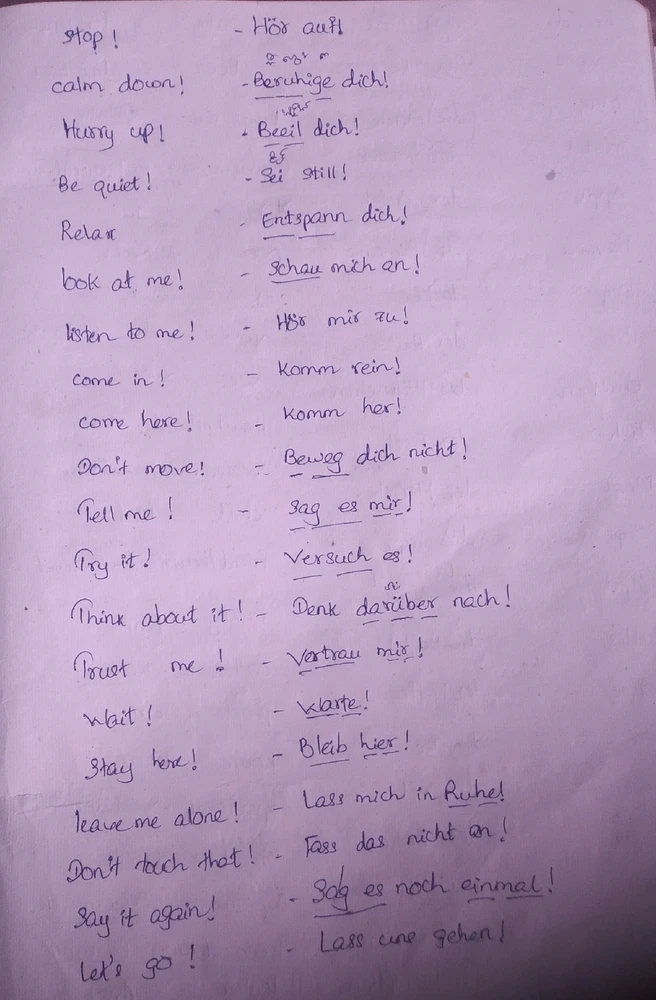 stop! - Hör auf!
calm down! - Beruhige dich!
Hurry up! - Beeil dich!
Be quiet! - Sei still!
Relax - Entspann dich!
look at me! - Schau mich an!
listen to me! - Hör mir zu!
come in! - Komm rein!
come here! - Komm her!
Don't move! - Beweg dich nicht!
Tell me! - Sag es mir!
Try it! - Versuch es!
Think about it! - Denk darüber nach!
Trust me! - Vertrau mir!
Wait! - Warte!
Stay here! - Bleib hier!
leave me alone! - Lass mich in Ruhe!
Don't touch that! - Fass das nicht an!
Say it again! - Sag es noch einmal!
Let's go! - Lass uns gehen!